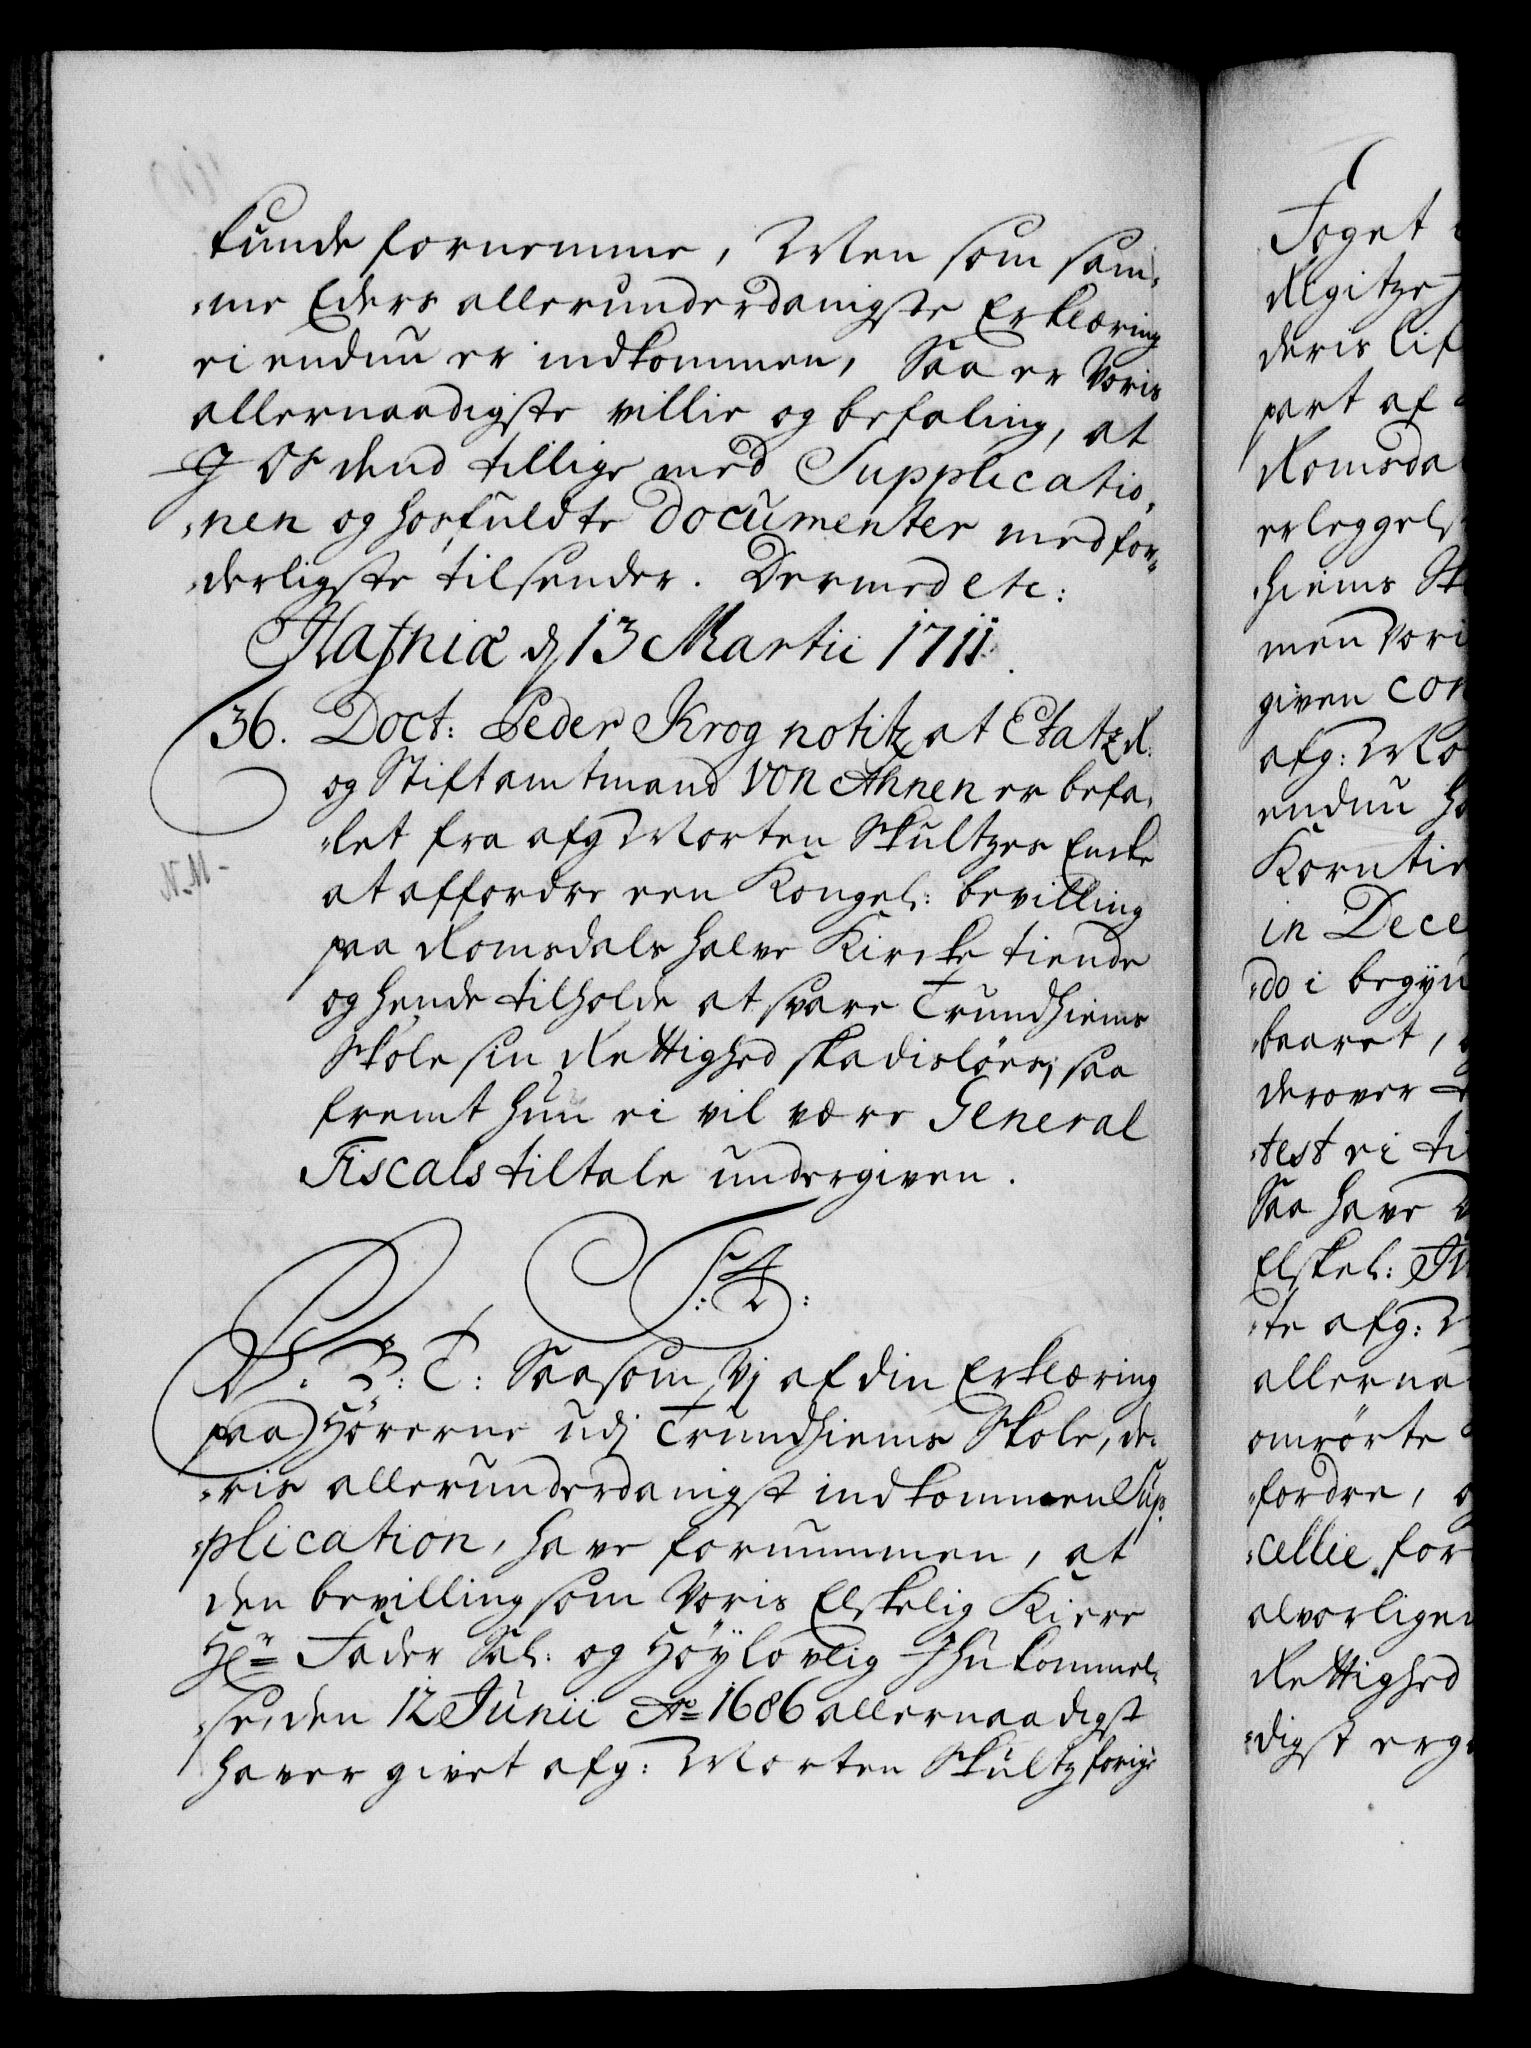 kunde fornemme, Men som sam-
-me Eders allerunderdanigste Erklæring
ei endnu er indkommen, Saa er Voris
allernaadigste villie og befaling, at
I Os dend tillige med Supplicatio-
-nen og hosfulde documenter med for-
-derligste tilsender. Dermed etc:
Hafniæ d 13 Martii 1711.
36. Doct: Peder Krog notitz at Etatz R:
og Stiftamtmand von Ahnen er befa-
-let fra afg Morten Skultzes Encke
at affordre een Kongel: bevilling
paa Romsdals halve Kircke tiende
og hende tilholde at svare Trundhiems
Skole sin Rettighed skadisløes, saa
fremt hun ei vil være General
Fiscals tiltale undergiven.
F: 4
V. G: T: Saasom Vj af din Erklæring
paa Hørerne udj Trundhiems Skole, de-
-ris allerunderdanigst indkommen Sup-
-plication, have fornummen, at
den bevilling som Voris Elskelig Kiere
Hr Fader Sal: og Høylovlig Ihukommel-
-se, den 12 Junii Ao 1686 allernaadigst
haver givet afg: Morten Skultz forige
Foget
Regitze
deris lif
part af
Romsda
erleggels
hiems Sk
men Vori
given con
afg: Mo
endnu ha
Korntie
in Dece
-do i begyn
-baaret,
derover
-test ei til
Saa have
Elskel:
-te afg: M
allerna
omrørte
-fordre, og
-cellie for
alvorligen
Rettighed
-digst erg